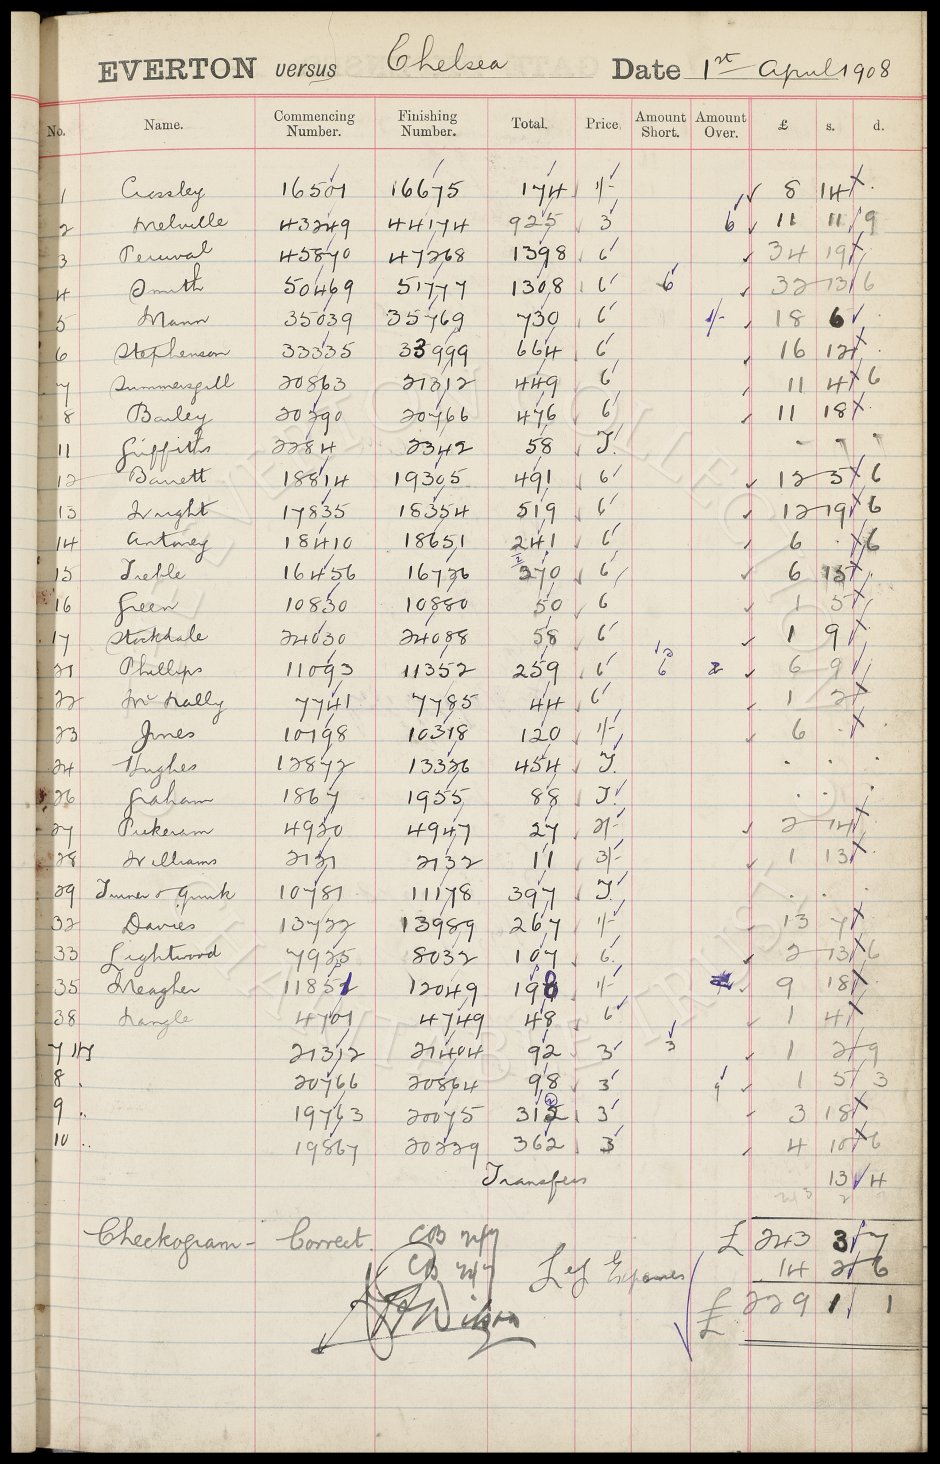 EVERTON versus Chelsea Date 1st April 1908
No. Name. Commencing Number. Finishing Number. Total. Price Amount Short. Amount Over. £ s. d.
1 Crossley 16501 16675 174 1/- 8 14 .
2 Melville 43249 44174 925 3 6 11 11 9
3 Percival 45870 47268 1398 6 34 19
4 Smith 50469 51777 1308 6 6 32 13 6
5 Mann 35039 35769 730 6 1/- 18 6 .
6 Stephenson 33335 33999 664 6 16 12 .
7 Summersgill 20863 21312 449 6 11 4 6
8 Bailey 20290 20766 476 6 11 18 .
11 Griffiths 2284 2342 58 T. - - -
12 Barrett 18814 19305 491 6 12 5 6
13 Wright 17835 18354 519 6 12 19 6
14 Antoney 18410 18651 241 6 6 . 6
15 Treble 16456 16726 270 6 6 15 .
16 Green 10830 10880 50 6 1 5
17 Stockdale 24030 24088 58 6 1 9 .
21 Phillips 11093 11352 259 6 6 6 9
22 McNally 7741 7785 44 6 1 2
23 Jones 10198 10318 120 1/- 6 . .
24 Hughes 12872 13326 454 T. . . .
26 Graham 1867 1955 88 T. . . .
27 Pickeram 4920 4947 27 2/- 2 14
28 Williams 2121 2132 11 3/- 1 13 .
29 Turner & Quirk 10781 11178 397 T. . . .
32 Davies 13722 13989 267 1/- 13 7
33 Lightwood 7925 8032 107 6 2 13 6
35 Meagher 11851 12049 198 1/- 9 18 .
38 Nangle 4701 4749 48 6 1 4
7 21312 21404 92 3 3 1 2 9
8 . 20766 20864 98 3 9 1 5 3
9 .. 19763 20075 312 3 3 18
10 .. 19867 20229 362 3 4 10 6
Transfers 13 4
Checkogram - Correct. CB £ 243 3 7
CB Less Expenses 14 2 6
Wilson £ 229 1 1